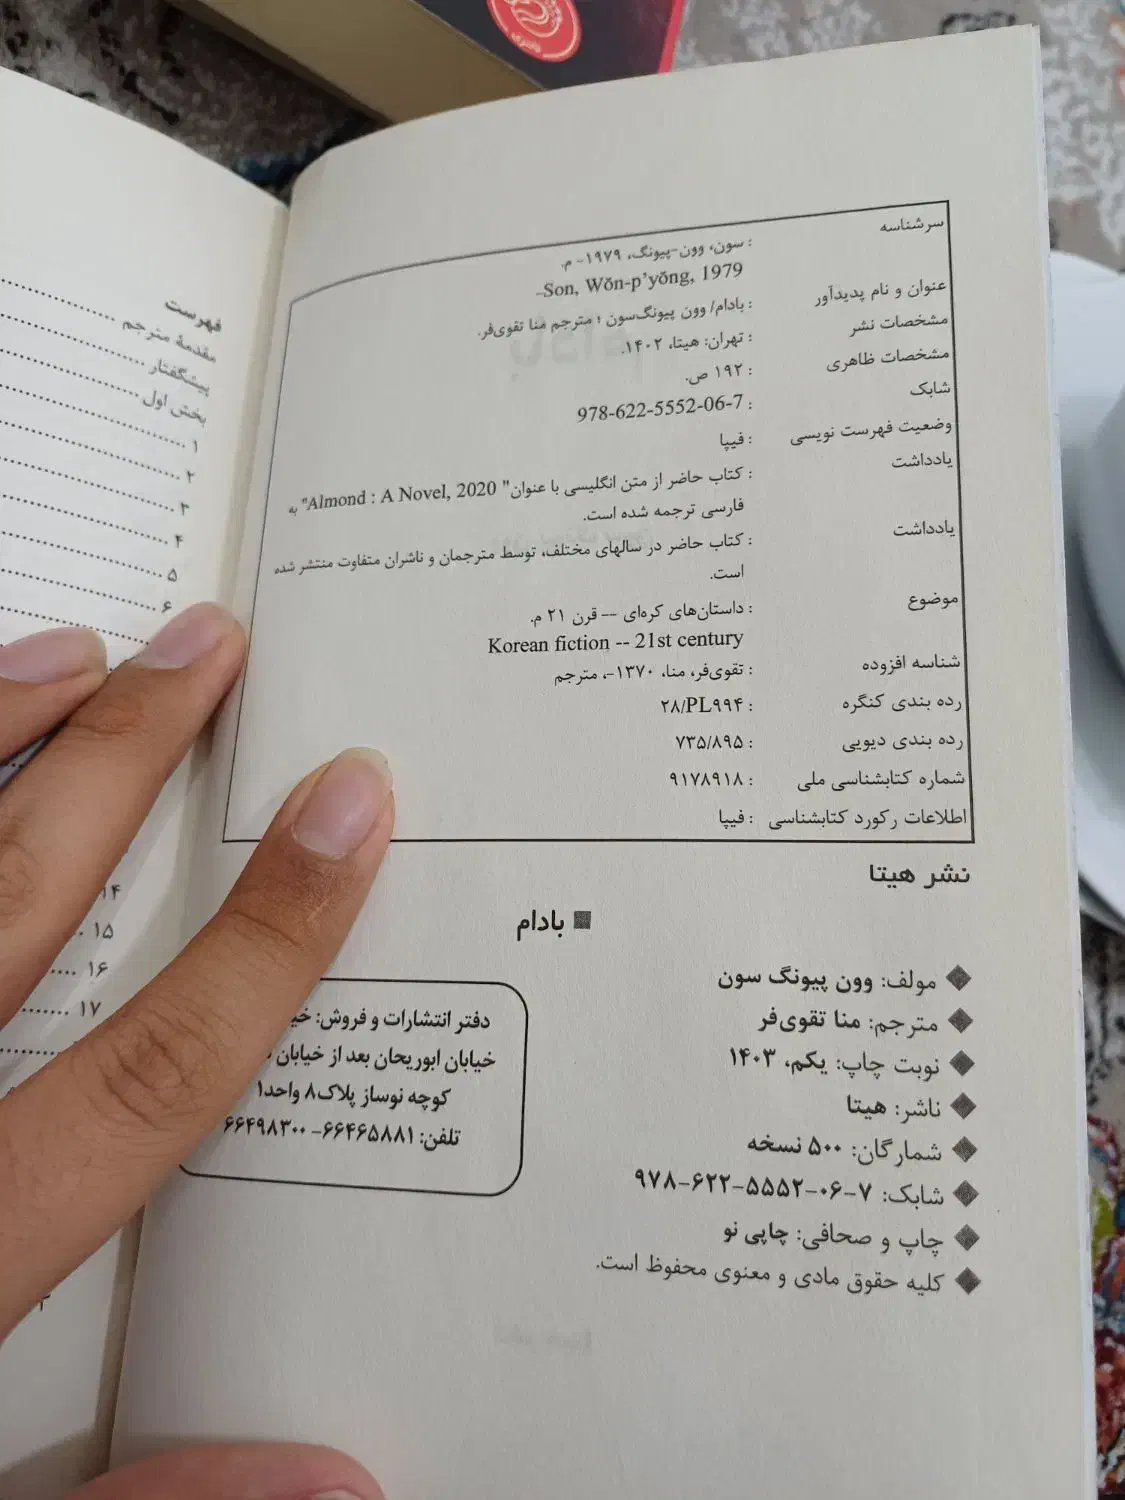 سرشناسه : سون، وون-پیونگ، ۱۹۷۹- م.
Son, Wŏn-p'yŏng, 1979-
عنوان و نام پدیدآور : بادام/ وون پیونگ‌سون ؛ مترجم منا تقوی‌فر.
مشخصات نشر : تهران: هیتا، ۱۴۰۲.
مشخصات ظاهری : ۱۹۲ ص.
شابک : 978-622-5552-06-7
وضعیت فهرست نویسی : فیپا
یادداشت : کتاب حاضر از متن انگلیسی با عنوان" Almond : A Novel, 2020" به
فارسی ترجمه شده است.
یادداشت : کتاب حاضر در سالهای مختلف، توسط مترجمان و ناشران متفاوت منتشر شده
است.
موضوع : داستان‌های کره‌ای -- قرن ۲۱ م.
Korean fiction -- 21st century
شناسه افزوده : تقوی‌فر، منا، ۱۳۷۰-، مترجم
رده بندی کنگره : ۲۸/PL۹۹۴
رده بندی دیویی : ۷۳۵/۸۹۵
شماره کتابشناسی ملی : ۹۱۷۸۹۱۸
اطلاعات رکورد کتابشناسی : فیپا
نشر هیتا
■ بادام
◆ مولف: وون پیونگ سون
◆ مترجم: منا تقوی‌فر
◆ نوبت چاپ: یکم، ۱۴۰۳
◆ ناشر: هیتا
◆ شمارگان: ۵۰۰ نسخه
◆ شابک: ۹۷۸-۶۲۲-۵۵۵۲-۰۶-۷
◆ چاپ و صحافی: چاپی نو
◆ کلیه حقوق مادی و معنوی محفوظ است.
دفتر انتشارات و فروش:
خیابان ابوریحان بعد از خیابان
کوچه نوساز پلاک۸ واحد۱
تلفن: ۶۶۴۶۵۸۸۱- ۶۶۴۹۸۳۰۰
فهرست
مقدمهٔ مترجم
پیشگفتار
بخش اول
۱
۲
۳
۴
۵
۶
۱۴
۱۵
۱۶
۱۷